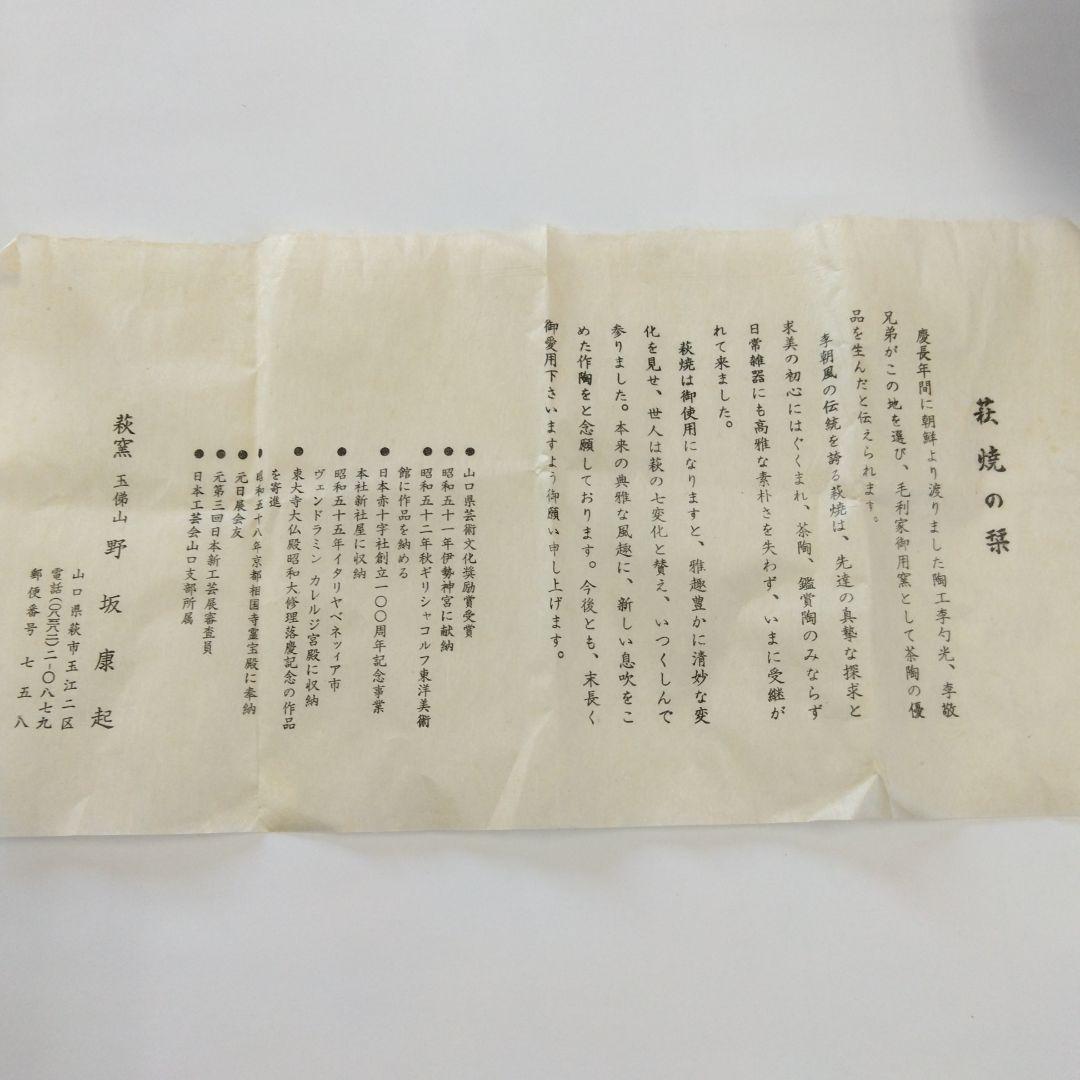 萩焼の栞
慶長年間に朝鮮より渡りました陶工李勺光、李敬
兄弟がこの地を選び、毛利家御用窯として茶陶の優
品を生んだと伝えられます。
李朝風の伝統を誇る萩焼は、先達の真摯な探求と
求美の初心にはぐくまれ、茶陶、鑑賞陶のみならず
日常雑器にも高雅な素朴さを失わず、いまに受継が
れて来ました。
萩焼は御使用になりますと、雅趣豊かに清妙な変
化を見せ、世人は萩の七変化と賛え、いつくしんで
参りました。本来の典雅な風趣に、新しい息吹をこ
めた作陶をと念願しております。今後とも、末長く
御愛用下さいますよう御願い申し上げます。
●山口県芸術文化奨励賞受賞
●昭和五十一年伊勢神宮に献納
●昭和五十二年秋ギリシャコルフ東洋美術
館に作品を納める
●日本赤十字社創立一〇〇周年記念事業
本社新社屋に収納
●昭和五十五年イタリヤベネッィア市
ヴェンドラミン カレルジ宮殿に収納
●東大寺大仏殿昭和大修理落慶記念の作品
を寄進
●昭和五十八年京都相国寺霊宝殿に奉納
●元日展会友
●元第三回日本新工芸展審査員
●日本工芸会山口支部所属
萩窯 玉俤山 野坂康起
山口県萩市玉江二区
電話(〇八三八二)二-〇八七九
郵便番号 七五八